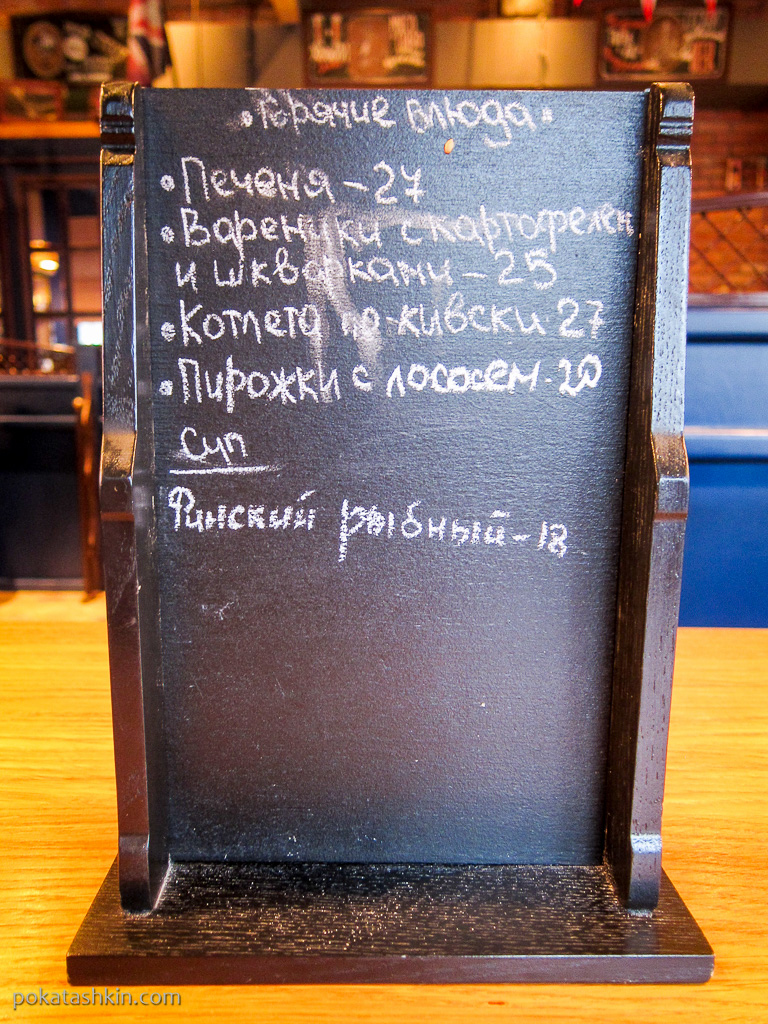 •Горячие блюда•
•Печеня - 27
•Вареники с картофелем
и шкварками - 25
•Котлета по-кивски 27
•Пирожки с лососем - 20
Суп
Финский рыбный - 18
pokatashkin.com